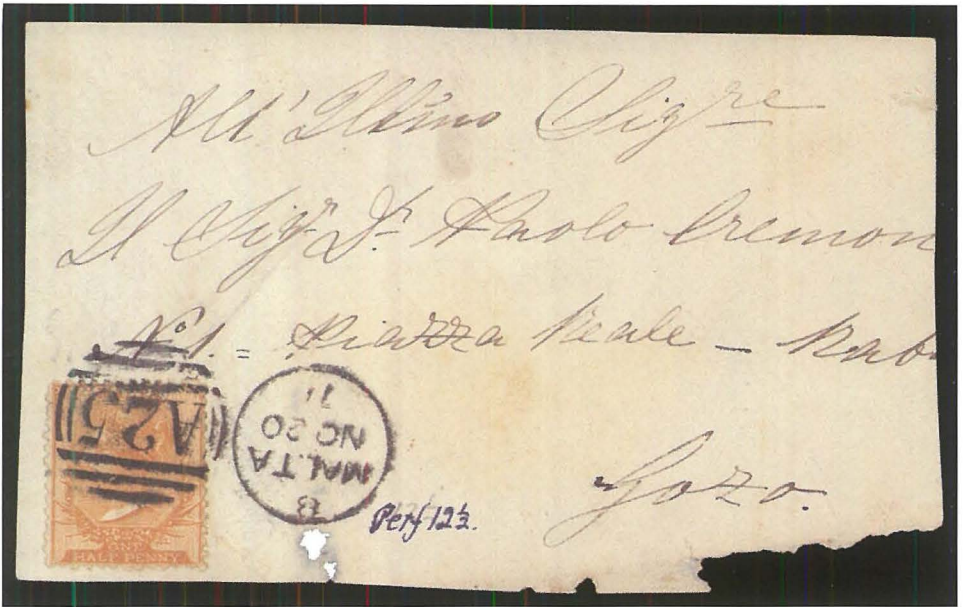 All' Illmo Sigre
Il Sigr Dr Paolo Cremon
No 1. = Piazza Reale – Rab
Gozo.
A25
B
MALTA
NO 20
71
Perf 12½.
HALF PENNY